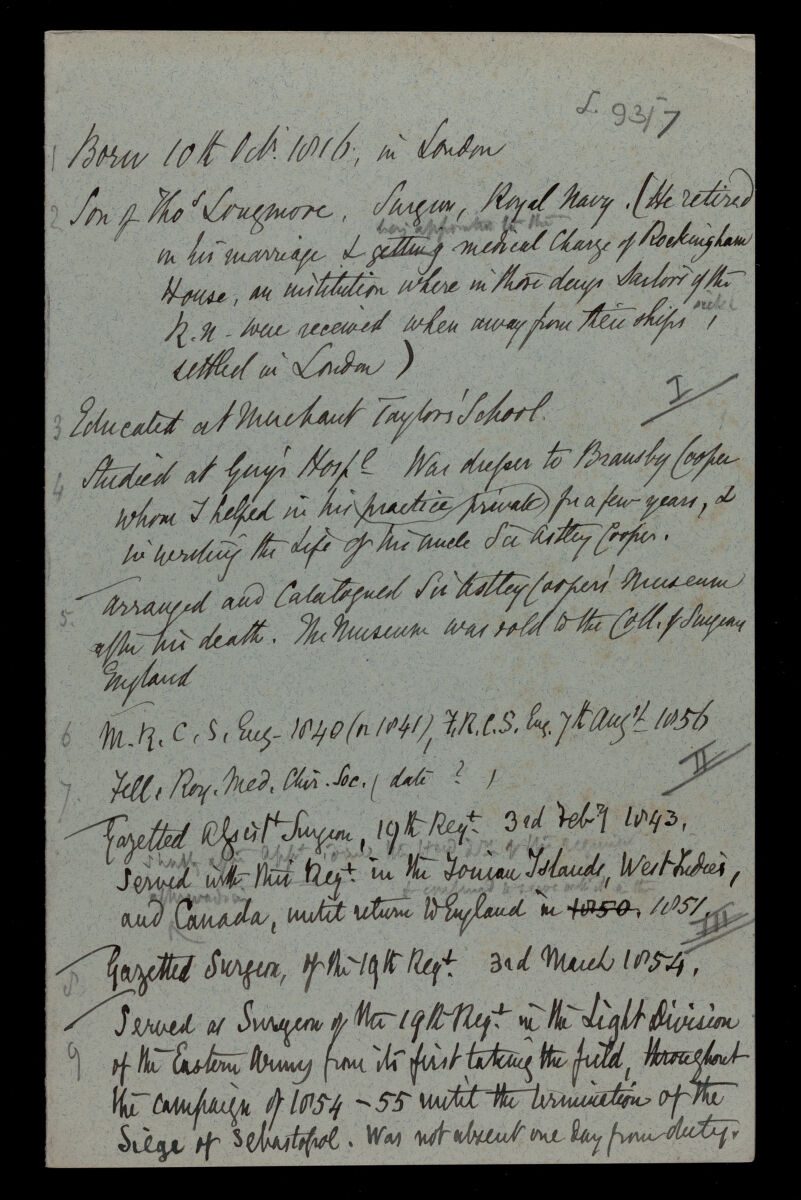 L. 93/7
1 Born 10th Octr. 1816, in London
2 Son of Thos Longmore, Surgeon, Royal Navy. (He retired
being appointed to the
on his marriage & getting medical Charge of Rockingham
House, an institution where in those days Sailors of the
R.N - were received when away from their ships,
settled in London)
I
3 Educated at Merchant Taylors' School.
4 Studied at Guy's Hospl Was dresser to Bransby Cooper
whom I helped in his practice private for a few years, &
in writing the Life of his uncle Sir Astley Cooper.
5. Arranged and Catalogued Sir Astley Cooper's Museum
after his death. The Museum was sold to the Coll. of Surgeons
England
6 M.R.C.S. Eng - 1840 (or 1841), F.R.C.S. Eng. 7th Augt 1856
II
7. Fell. Roy. Med. Chir. Soc. (date ? )
Gazetted Assistt Surgeon, 19th Regt. 3rd Feby 1843.
Served with this Regt. in the Ionian Islands, West Indies,
afterwards in
and Canada, until return to England in 1850. 1851.
III
8. Gazetted Surgeon, of the 19th Regt. 3rd March 1854.
9 Served as Surgeon of the 19th Regt. in the Light Division
of the Eastern Army from its first taking the field, throughout
the campaign of 1854 - 55 until the termination of the
Siege of Sebastopol. Was not absent one day from duty.